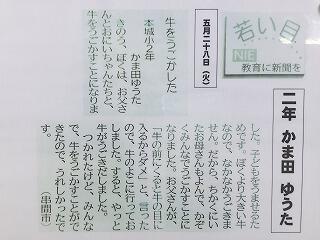 若い目
NIE
教育に新聞を
五月二十八日(火)
牛をうごかした
本城小2年
かま田ゆうた
きのう、ぼくは、お父さ
んとおにいちゃんたちと、
牛をうごかすことになりま
した。子どもをうませるた
めです。ぼくより大きい牛
なので、なかなかうごきま
せん。だから、ちかくにい
たお母さんもよんで、かぞ
くみんなでうごかすことに
なりました。お父さんが、
「牛の前にくると牛の目に
入るからダメ」と、言った
ので、牛のよこに行ってお
しました。すると、やっと
牛がうごきだしました。
つかれたけど、みんな
で、牛をうごかすことがで
きたので、うれしかったで
す。(串間市)
二年 かま田 ゆうた